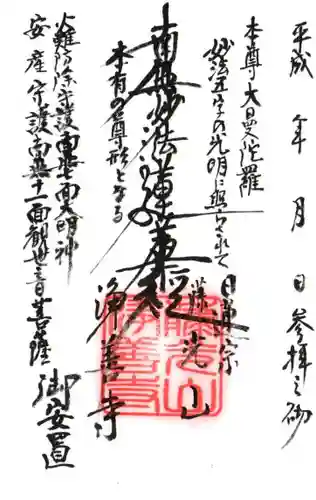 平成 年 月 日 参拝之砌
本尊大曼陀羅
妙法五字の光明に照らされて
本有の尊形となる
南無妙法蓮華経
日蓮宗
藤光山
浄善寺
火難防除守護南無七面大明神
安産守護南無十一面観世音菩薩
御安置